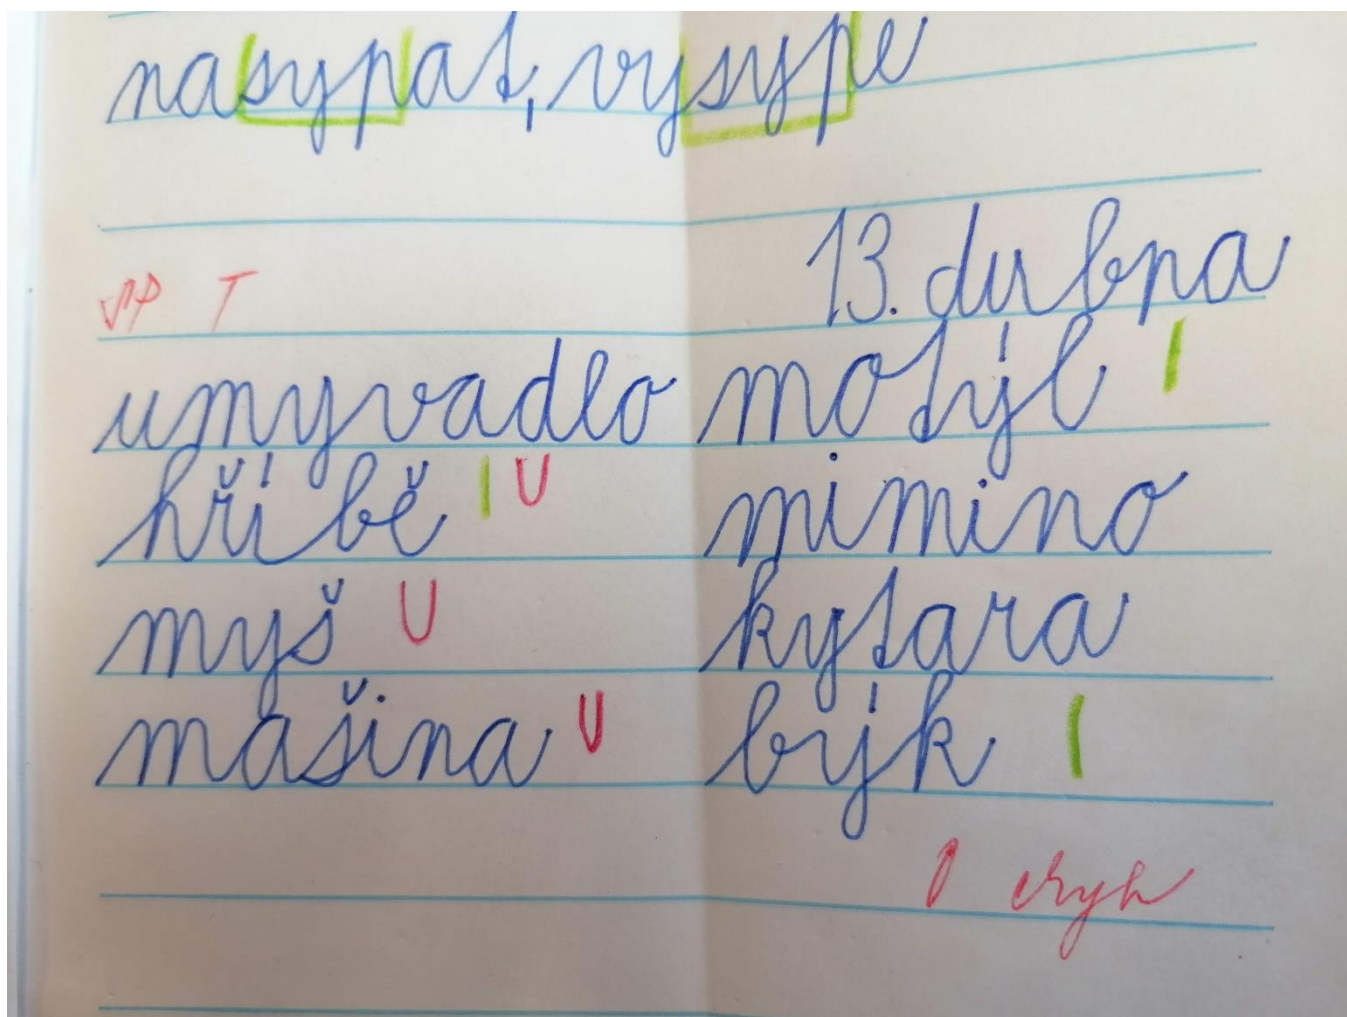 nasypat, vysype
13. dubna
umyvadlo motýl
hříbě mimino
myš kytara
mašina býk